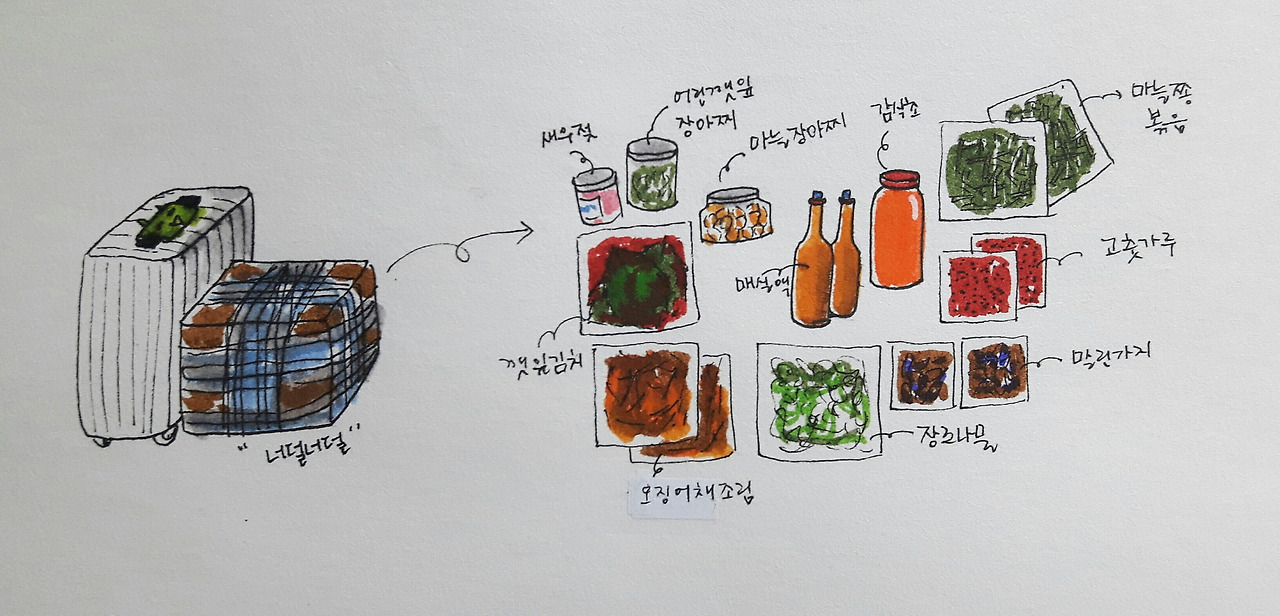 "너덜너덜"
새우젓
어린깻잎
장아찌
마늘장아찌
감식초
마늘쫑
볶음
매실액
고춧가루
깻잎김치
말린가지
장조나물
오징어채조림